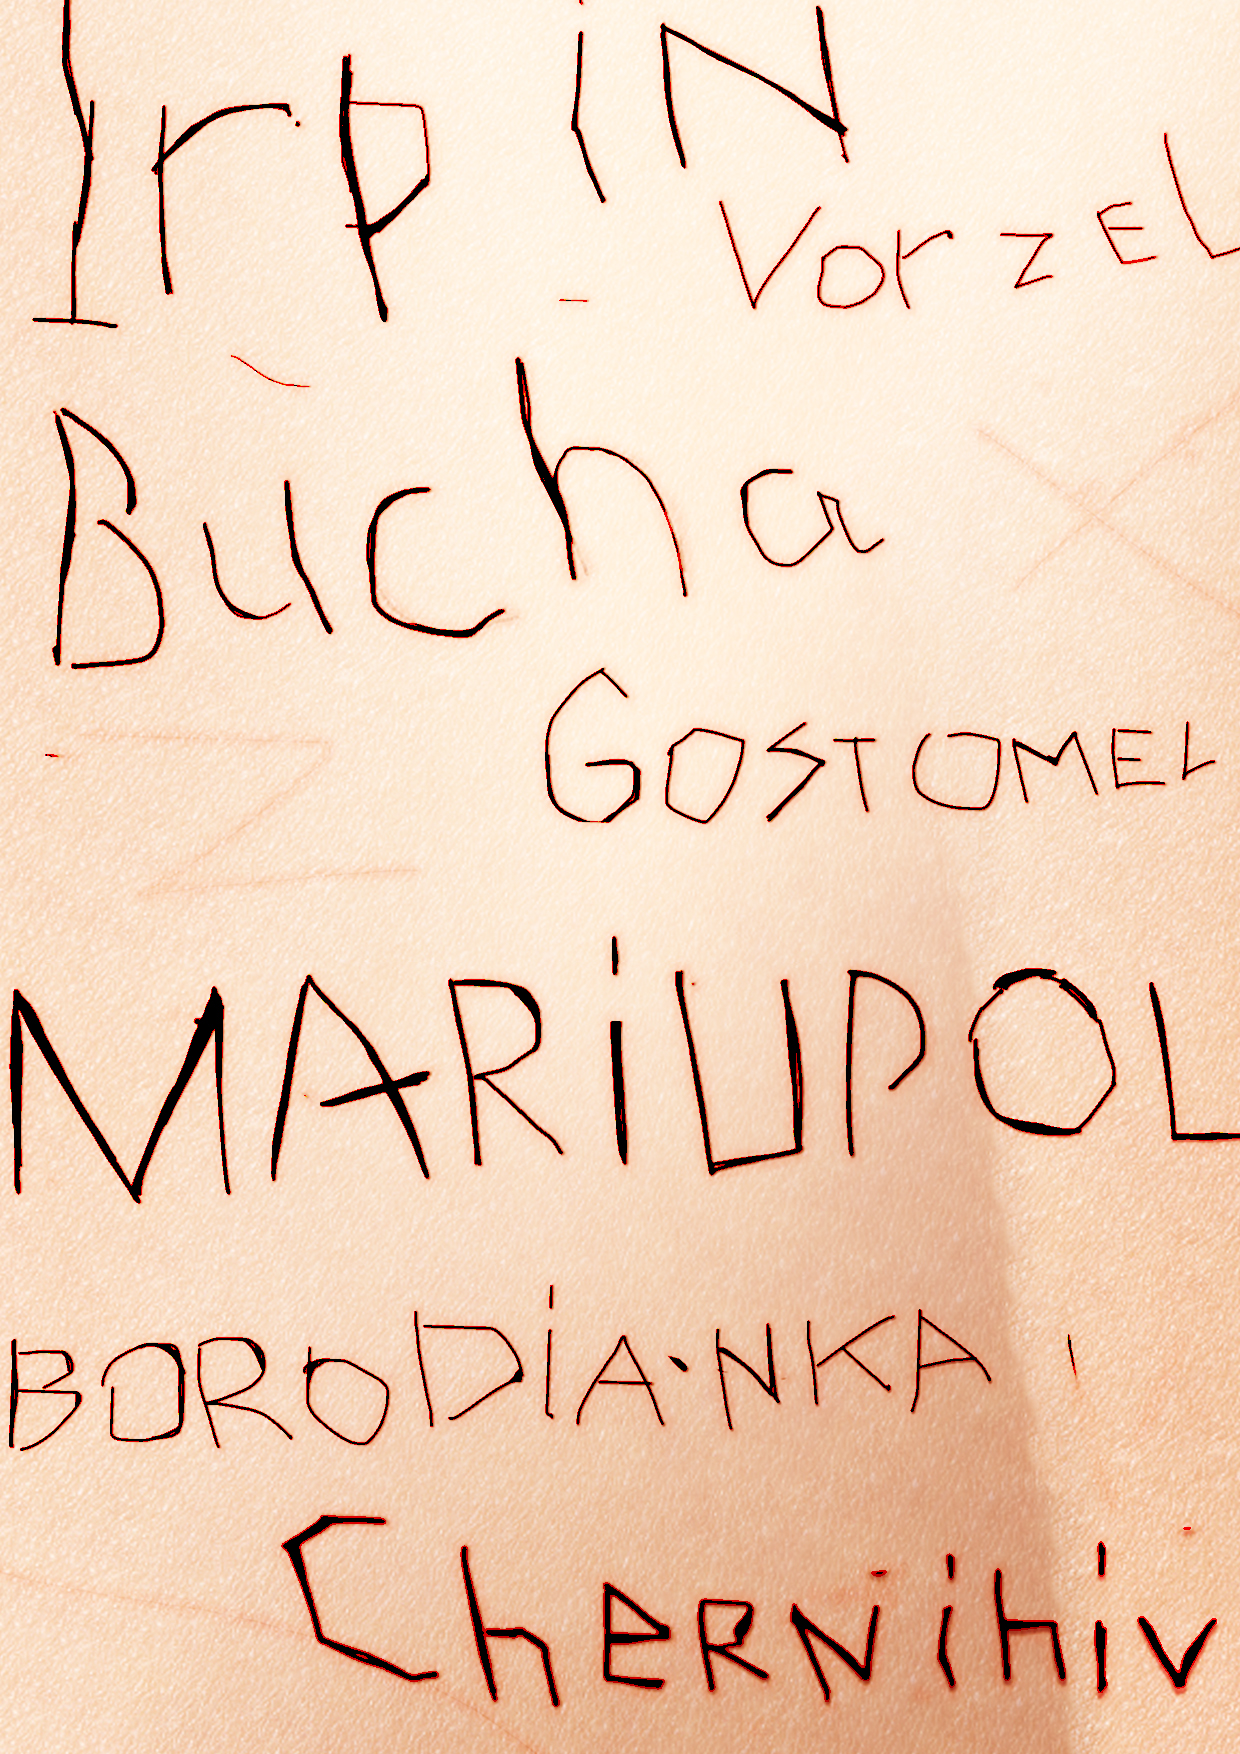 Irpin
Vorzel
Bucha
GOSTOMEL
MARiUPOL
BORODiANKA
CherNihiv